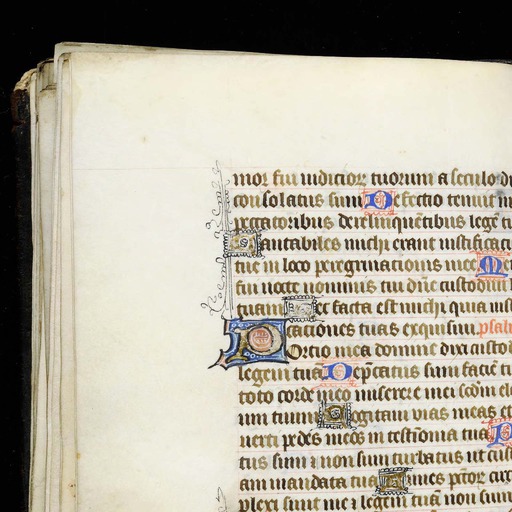 mor fui iudicior tuorum a seculo d
consolatus sum Defectio tenuit m
peccatoribus derelinquētibus legē t
Cantabiles michi erant iustificati
tue in loco peregrinacionis mee Me
fui nocte nominis tui dn̄e custodiui l
tuam Hec facta est michi quia ius
ficaciones tuas exquisiui psal
Portio mea domine dixi custod
legem tuā Dep̄catus sum faciē t
toto corde meo miserere mei scdm el
um tuum Cogitaui vias meas et
uerti pedes meos in testīonia tua P
tus sum ⁊ non sum turbatus ut cus
am mandata tua Funes pctor̄ circ
plexi sunt me ⁊ legem tuā non sum